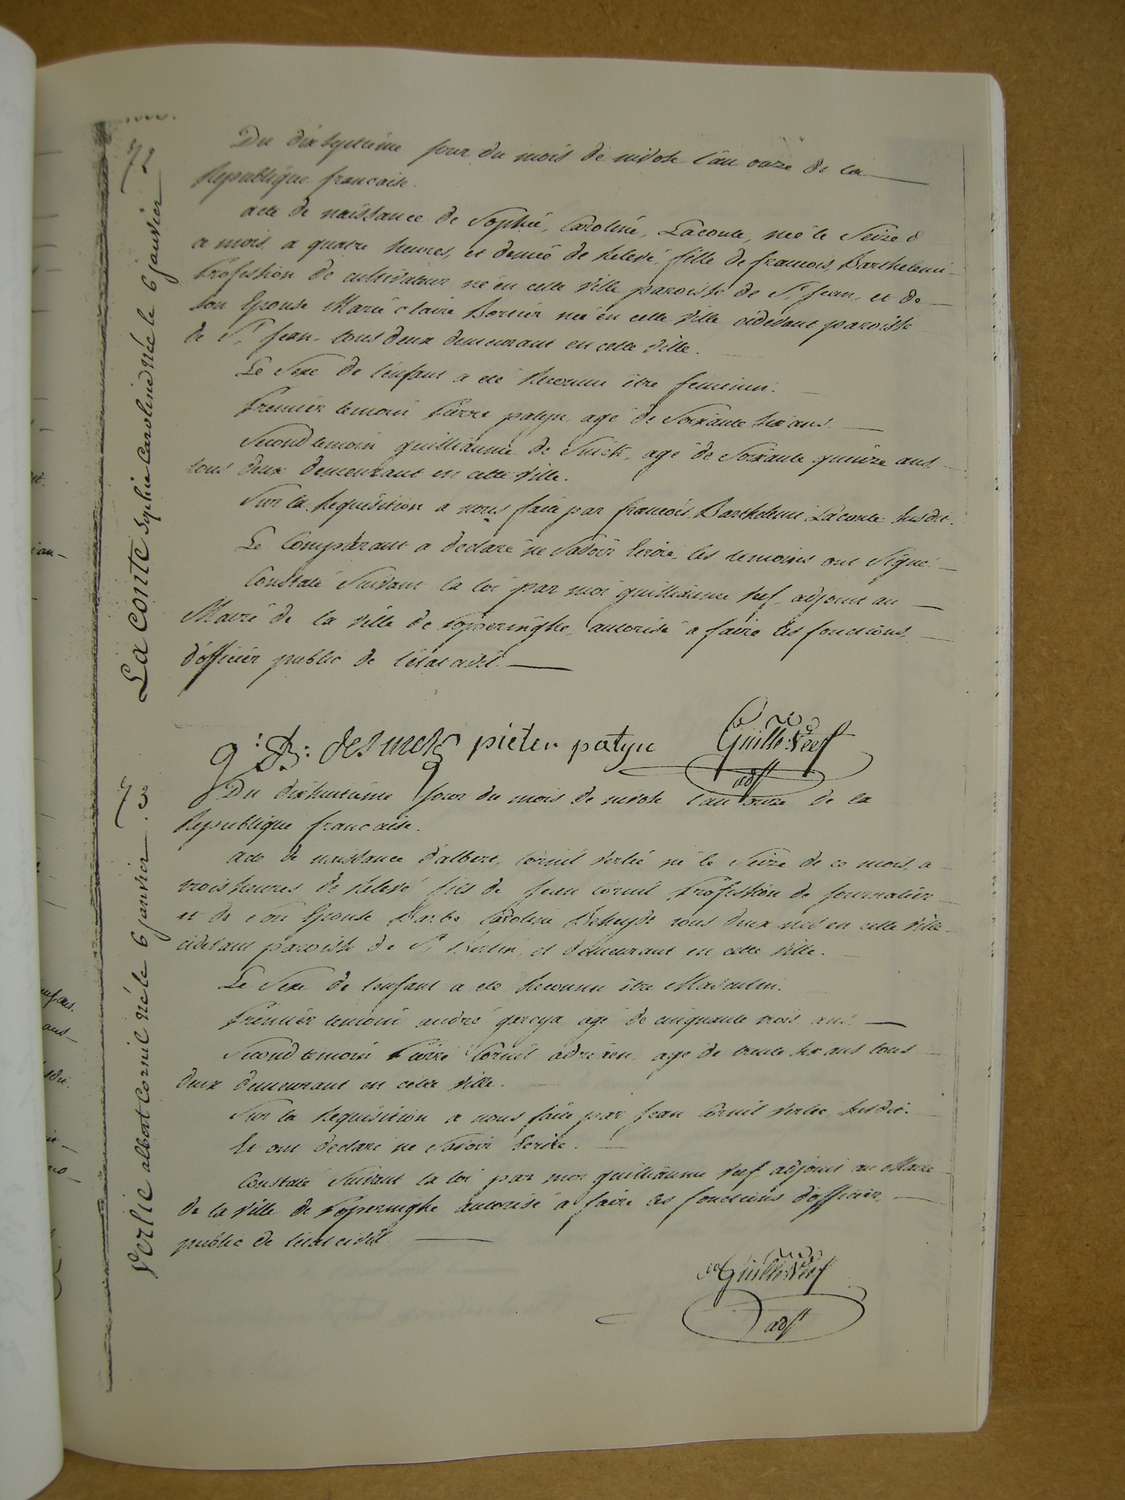 72
La Conte Sophie Caroline Née le 6 janvier
Du dixseptième jour du mois de nivose l'an onze de la
Republique francaise.
acte de naissance de Sophie, Caroline, Laconte, née le Seize d
ce mois a quatre heures, et demie de Relevé, fille de francois Barthelemi
Profession de cultivateur né en cette ville paroisse de St Jean, et de
son Epouse Marie Claire née en cette ville cidevant paroisse
de St Jean, tous deux demeurant en cette ville.
Le Sexe de l'enfant a eté Reconnu être feminin.
Premier temoin Pierre patyn agé de Soixante six ans.
Second temoin guilliaume de Smets, agé de Soixante quinze ans
tous deux demeurant en cette ville.
Sur la Requisition a nous faite par francois Barthelemi Laconte Susdit.
Le Comparant a declaré ne Savoir Ecrire, les temoins ont Signé.
Constaté Suivant la loi par moi guilliaume Verf adjoint au
Maire de la ville de Poperinghe, autorisé a faire les fonctions
d'officier public de l'état civil.
g: B: desmets pieter patyn Guille Verf
adjt
73
Verlie albert Cornil Né le 6 janvier
Du dixhuitième jour du mois de nivose l'an onze de la
Republique francaise.
acte de naissance d'albert, Cornil Verlie né le Seize de ce mois, a
trois heures de Relevé fils de Jean Cornil Profession de Journalier
et de Son Epouse Barbe Caroline tous deux nés en cette ville
cidevant paroisse de St Bertin, et demeurant en cette ville.
Le Sexe de l'enfant a eté Reconnu être Masculin.
Premier temoin andré agé de cinquante trois ans.
Second temoin Pierre Cornil agé de trente six ans tous
deux demeurant en cette ville.
Sur la Requisition a nous faite par Jean Cornil Verlie Susdit.
Et ont declaré ne Savoir Ecrire.
Constaté Suivant la loi par moi guilliaume Verf adjoint au Maire
de la ville de Poperinghe autorisé a faire les fonctions d'officier
public de l'état civil
Guille Verf
adjt